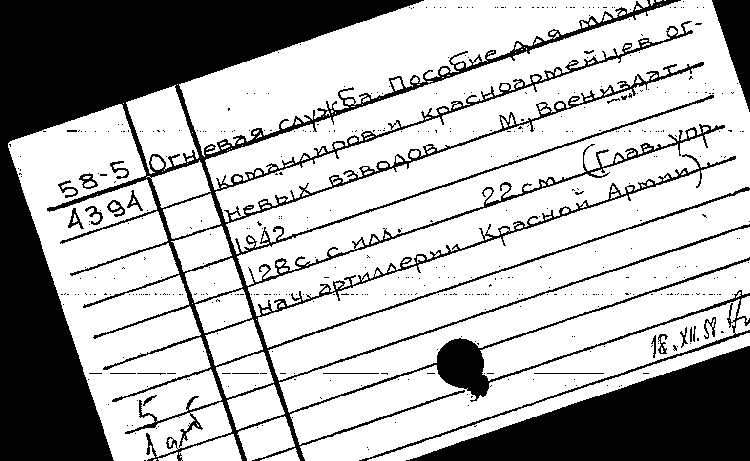 Огневая служба. Пособие для млад
58-5 командиров и красноармейцев ог-
4394 невых взводов. М., Воениздат,
1942.
128 с. с илл. 22 см. (Глав. упр.
нач. артиллерии Красной Армии).
18.XII.58.
5
1